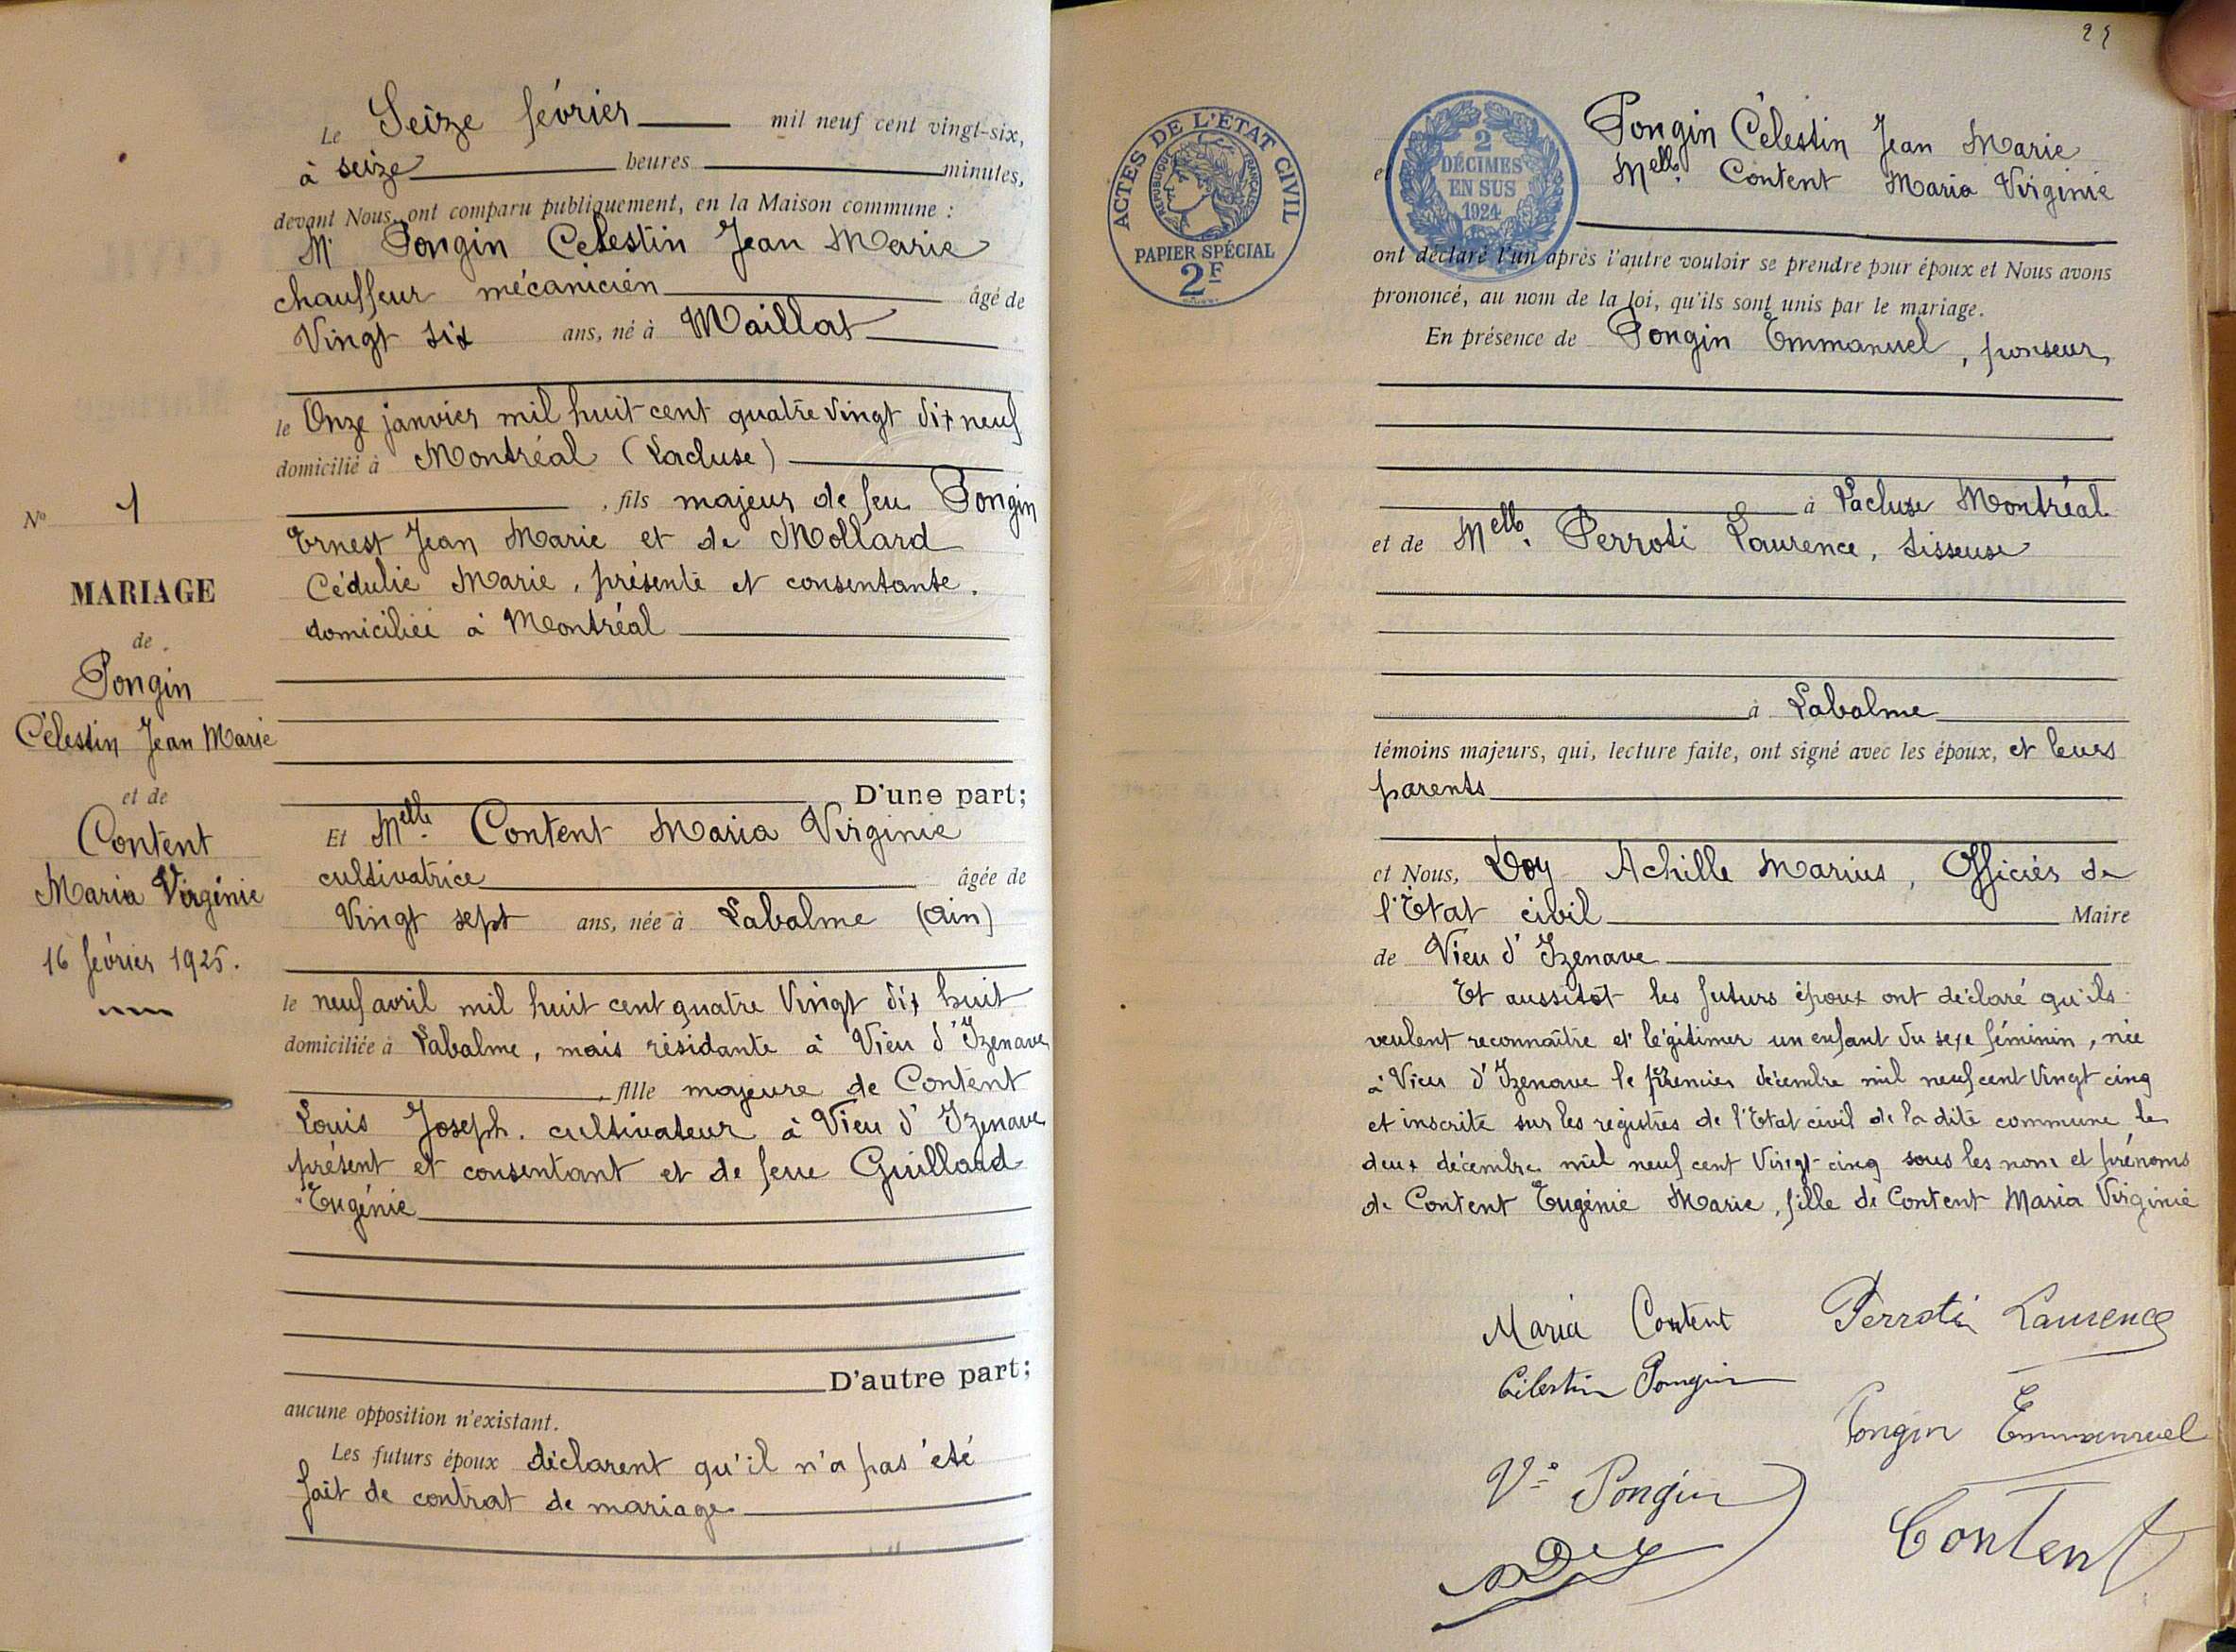 Le Seize février mil neuf cent vingt-six,
à seize heures minutes,
devant Nous, ont comparu publiquement, en la Maison commune :
M. Pongin Celestin Jean Marie
chauffeur mécanicien âgé de
Vingt six ans, né à Maillat
le Onze janvier mil huit cent quatre vingt dix neuf
domicilié à Montréal (Lacluse)
, fils majeur de feu Pongin
Ernest Jean Marie et de Mollard
Cédulie Marie, présente et consentante.
domiciliée à Montréal
D'une part;
Et Melle Content Maria Virginie
cultivatrice âgée de
Vingt sept ans, née à Labalme (Ain)
le neuf avril mil huit cent quatre Vingt dix huit
domiciliée à Labalme, mais résidante à Vieu d'Izenave
, fille majeure de Content
Louis Joseph. cultivateur à Vieu d'Izenave
présent et consentant et de feue Guillard
Eugénie
D'autre part;
aucune opposition n'existant.
Les futurs époux déclarent qu'il n'a pas été
fait de contrat de mariage
No 1
MARIAGE
de
Pongin
Célestin Jean Marie
et de
Content
Maria Virginie
16 février 1925.
ACTES DE L'ÉTAT CIVIL
RÉPUBLIQUE FRANÇAISE
PAPIER SPÉCIAL
2F
2
DÉCIMES
EN SUS
1924
Pongin Célestin Jean Marie
et Melle Content Maria Virginie
ont déclaré l'un après l'autre vouloir se prendre pour époux et Nous avons
prononcé, au nom de la loi, qu'ils sont unis par le mariage.
En présence de Pongin Emmanuel, ponseur
à Lacluse Montréal
et de Melle. Perroti Laurence, tisseuse
à Labalme
témoins majeurs, qui, lecture faite, ont signé avec les époux, et leurs
parents
et Nous, Doy Achille Marius, Officier de
l'Etat civil Maire
de Vieu d'Izenave
Et aussitôt les futurs époux ont déclaré qu'ils
veulent reconnaître et légitimer un enfant du sexe féminin, née
à Vieu d'Izenave le premier décembre mil neuf cent vingt cinq
et inscrite sur les registres de l'Etat civil de la dite commune le
deux décembre mil neuf cent Vingt-cinq sous les nom et prénoms
de Content Eugénie Marie, fille de Content Maria Virginie
Maria Content Perroti Laurence
Célestin Pongin
Pongin Emmanuel
Ve Pongin
Doy
Content